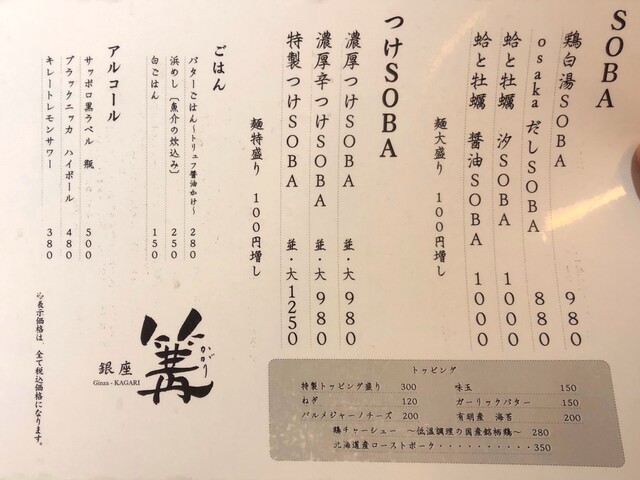 SOBA
鶏白湯SOBA 980
osaka だしSOBA 880
蛤と牡蠣 汐SOBA 1000
蛤と牡蠣 醤油SOBA 1000
麺大盛り 100円増し
つけSOBA
濃厚つけSOBA 並・大 980
濃厚辛つけSOBA 並・大 980
特製つけSOBA 並・大 1250
麺特盛り 100円増し
ごはん
バターごはん～トリュフ醤油かけ～ 280
浜めし（魚介の炊込み） 250
白ごはん 150
アルコール
サッポロ黒ラベル 瓶 500
ブラックニッカ ハイボール 480
キレートレモンサワー 380
※表示価格は、全て税込価格になります。
篝
かがり
銀座
Ginza - KAGARI
トッピング
特製トッピング盛り 300
味玉 150
ねぎ 120
ガーリックバター 150
パルメジャーノチーズ 200
有明産 海苔 200
鶏チャーシュー ～低温調理の国産銘柄鶏～ 280
北海道産ローストポーク・・・・・・・・・・350